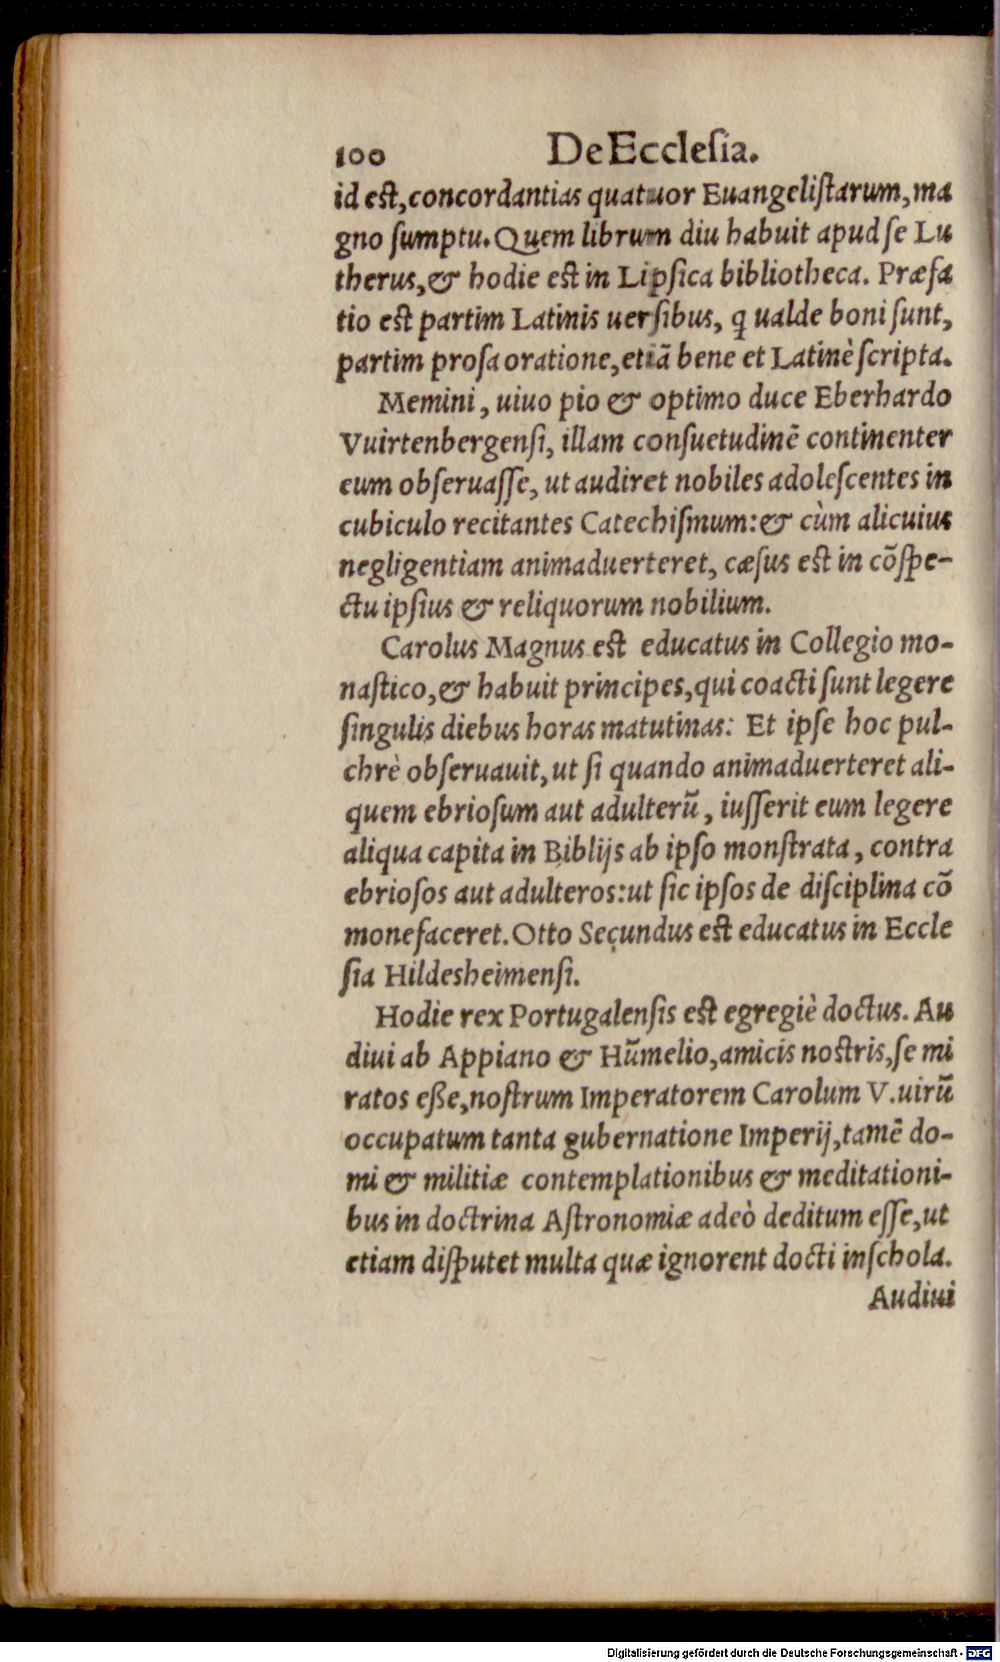 100 De Ecclesia.
id est, concordantias quatuor Euangelistarum, ma
gno sumptu. Quem librum diu habuit apud se Lu
therus, & hodie est in Lipsica bibliotheca. Præfa
tio est partim Latinis uersibus, q ualde boni sunt,
partim prosa oratione, etiã bene et Latinè scripta.
Memini, uiuo pio & optimo duce Eberhardo
Vuirtenbergensi, illam consuetudinẽ continenter
eum obseruasse, ut audiret nobiles adolescentes in
cubiculo recitantes Catechismum: & cùm alicuius
negligentiam animaduerteret, cæsus est in cõspe-
ctu ipsius & reliquorum nobilium.
Carolus Magnus est educatus in Collegio mo-
nastico, & habuit principes, qui coacti sunt legere
singulis diebus horas matutinas: Et ipse hoc pul-
chrè obseruauit, ut si quando animaduerteret ali-
quem ebriosum aut adulterũ, iusserit eum legere
aliqua capita in Biblijs ab ipso monstrata, contra
ebriosos aut adulteros: ut sic ipsos de disciplina cõ
monefaceret. Otto Secundus est educatus in Eccle
sia Hildesheimensi.
Hodie rex Portugalensis est egregiè doctus. Au
diui ab Appiano & Hũmelio, amicis nostris, se mi
ratos eße, nostrum Imperatorem Carolum V. uirũ
occupatum tanta gubernatione Imperij, tamẽ do-
mi & militiæ contemplationibus & meditationi-
bus in doctrina Astronomiæ adeò deditum esse, ut
etiam disputet multa quæ ignorent docti in schola.
Audiui
Digitalisierung gefördert durch die Deutsche Forschungsgemeinschaft - DFG